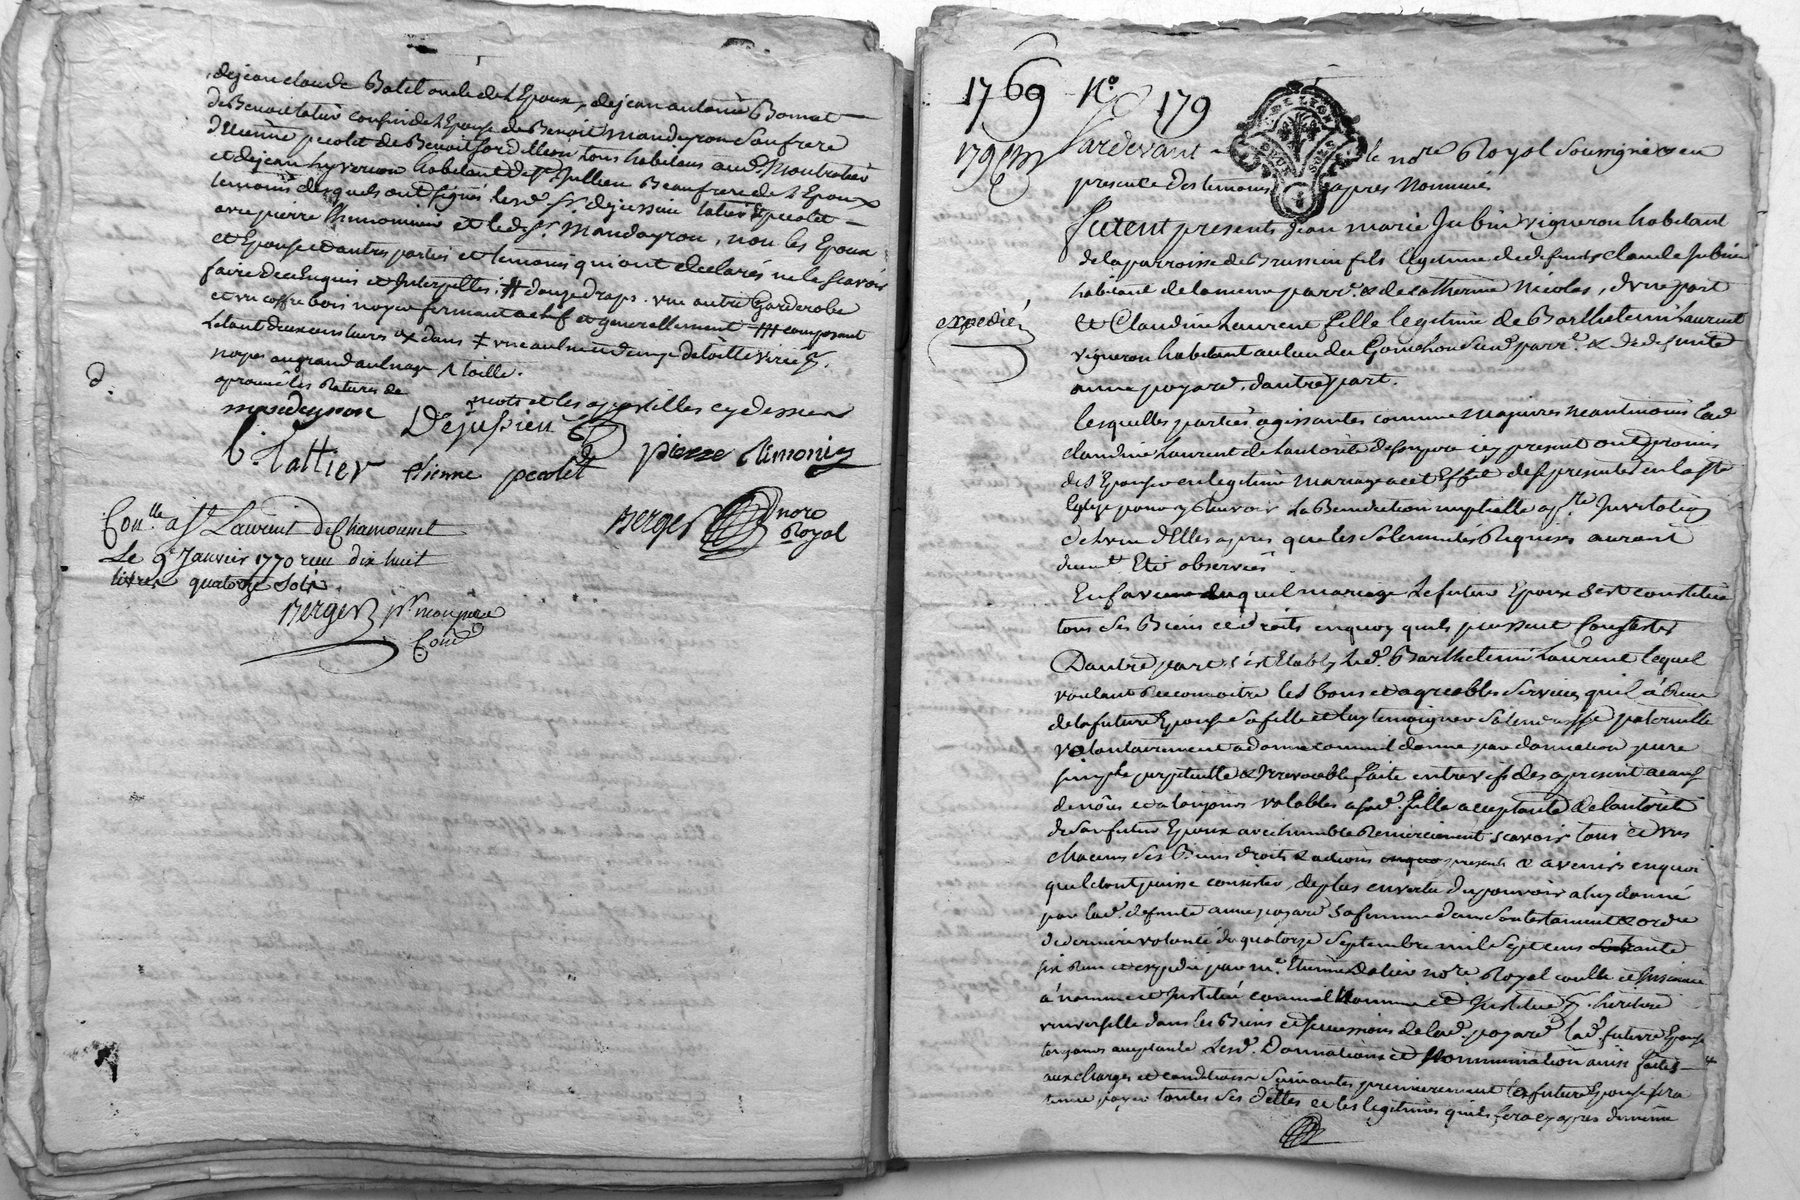 dejean claude Batel oncle de l'Epoux, dejean antoine Bonnat
de Benoit tatier cousin de l'Epouse de Benoit Mandeyron son frere
d'Etienne pecolet de Benoit tous habitans aud. Montrotier
et dejean hyvernon habitant de st Jullien Beaufrere de l'Epoux
temoins desquels ont signé lesd. Srs. dejussieu tatier & pecolet
avec pierre et led. Sr. Mandeyron, non les Epoux
et Epouse et autres parties et temoins qui ont declarés ne le scavoir
faire de ce Enquis et Interpellés. douze draps. une autre Garderobe
et un coffre bois noyer fermant a clef et generallement composant
toille.
aprouvé les ratures de
mots et les apostilles cydessus
mandeyron Dejussieu
b. tattier Etienne pecolet pierre
Berger nore Royal
Conlle a St Laurent de Chamousset
Le 9e Janvier 1770 reçu dix huit
livres quatorze sols
Berger pr mon pere
1769 No 179
179em
expedié
Pardevant le nore Royal soussigné & en
presence des temoins apres Nommés
Futent presents Jean marie Jubin vigneron habitant
de la parroisse de Brussieu fils legitime de defunt Claude Jubin
habitant de la meme parr. & de catherine Nicolas, d'une part
Et Claudine Laurent fille legitime de Barthelemi Laurent
vigneron habitant au lieu du Gonchon susd. parr.e & de defunte
anne poyard, d'autre part.
lesquelles parties agissantes comme Majeures Neantmoins lad.
claudine Laurent de l'autorité de son pere icy present ont promis
de s'Epouser en legitime mariage a cet Effet de se presenter en la ste
Eglise pour y Recevoir la Benediction nuptialle a pre Invitation
de l'un d'Elles apres que les solemnités Requises auront
duemt Eté observées
En faveur duquel mariage le futur Epoux s'est constitué
tous ses Biens et droits en quoy quils puissent Consister
D'autre part s'est Etably led. Barthelemi Laurent lequel
voulant Reconnoitre les bons et agreables services qu'il à Reçu
de la future Epouse sa fille et luy temoigner sa tendresse paternelle
volontairement a donné comme il donne par donnation pure
simple perpetuelle & Irrevocable faite entre vifs des apresent
et a toujours valables a sad. fille acceptante de l'autorité
de son futur Epoux avec humble Remerciement scavoir tous et uns
chacuns ses Biens droits & actions presents & avenirs en quoi
qu'ils puisse consister, de plus en vertu du pouvoir a luy donné
par lad. defunte anne poyard sa femme dans son testament & ordre
de derniere volonté du quatorze Septembre mil Sept cens soixante
six Reçu et expedié par me. Etienne Dalier nore Royal &
à nommé et Institué comme il Nomme et Institue pr. heritiere
universelle dans les Biens et successions de lad. poyard lad. future Epouse
toujours acceptante Lesd. Donnations et Nommination ainsi faites
aux charges et conditions suivantes premierement la future Epouse sera
tenue payer toutes ses dettes et les legitimes